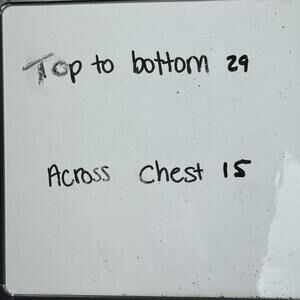 Top to bottom 29
Across Chest 15